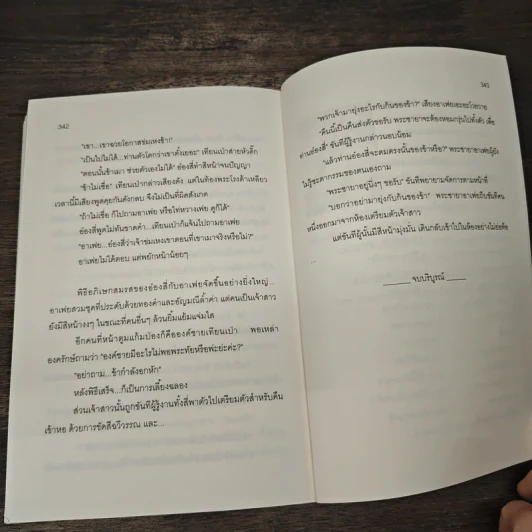 342
"เขา...เขาฉวยโอกาสข่มเหงข้า!"
"เป็นไปไม่ได้...ท่านตัวโตกว่าเขาตั้งเยอะ" เทียนเป่าส่ายหัวดิ๊ก
"ตอนนั้นข้าเมา ช่วยตัวเองไม่ได้" อ๋องสี่ทำสีหน้าจนปัญญา
"ข้าไม่เชื่อ" เทียนเป่ากล่าวเสียงดัง แต่ในท้องพระโรงค้าเหลียว
เวลานี้มีเสียงพูดคุยกันดังกลบ จึงไม่เป็นที่ผิดสังเกต
"ถ้าไม่เชื่อ ก็ไปถามอาเฟย หรือไห่หวางเฟย ดูก็ได้"
อ๋องสี่พูดไม่ทันขาดคำ...เทียนเป่าก็แจ้นไปถามอาเฟย
"อาเฟย...อ๋องสี่ว่าเจ้าข่มเหงเขาตอนที่เขาเมาจริงหรือไม่?"
อาเฟยไม่ได้ตอบ แต่พยักหน้าน้อยๆ
พิธีอภิเษกสมรสของอ๋องสี่กับอาเฟยจัดขึ้นอย่างยิ่งใหญ่...
อาเฟยสวมชุดที่ประดับด้วยทองคำและอัญมณีล้ำค่า แต่คนเป็นเจ้าสาว
ยังมีสีหน้างงๆ ในขณะที่คนอื่นๆ ล้วนยิ้มแย้มแจ่มใส
อีกคนที่หน้าตูมแก้มป่องก็คือองค์ชายเทียนเป่า พอเหล่า
องครักษ์ถามว่า "องค์ชายมีอะไรไม่พอพระทัยหรือพ่ะย่ะค่ะ?"
"อย่าถาม...ข้ากำลังอกหัก"
หลังพิธีเสร็จ...ก็เป็นการเลี้ยงฉลอง
ส่วนเจ้าสาวนั้นถูกขันทีผู้รู้งานทั้งสี่พาตัวไปเตรียมตัวสำหรับคืน
เข้าหอ ด้วยการขัดสีฉวีวรรณ และ...
343
"พวกเจ้ามายุ่งอะไรกับก้นของข้า?" เสียงอาเฟยเอะอะโวยวาย
"คืนนี้เป็นคืนส่งตัวขอรับ พระชายาจะต้องหอมกรุ่นไปทั้งตัว เพื่อ
ท่านอ๋องสี่" ขันทีผู้รู้งานกล่าวนอบน้อม
"แล้วท่านอ๋องสี่จะดมตรงนั้นของข้าหรือ?" พระชายาอาเฟยผู้ยัง
ไม่รู้ชะตากรรมของตนเองถาม
"พระชายาอยู่นิ่งๆ ขอรับ" ขันทีพยายามจัดการตามหน้าที่
"บอกว่าอย่ามายุ่งกับก้นข้า" พระชายาอาเฟยถีบขันทีคน
หนึ่งออกมาจากห้องเตรียมตัวเจ้าสาว
แต่ขันทีผู้นั้นมีสีหน้ามุ่งมั่น เดินกลับเข้าไปในห้องอย่างไม่ย่อท้อ
...
______ จบบริบูรณ์ ______